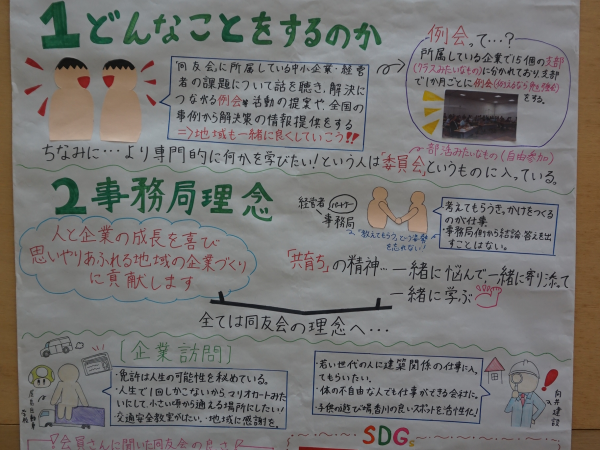 1 どんなことをするのか
同友会に所属している中小企業・経営
者の課題について話を聴き、解決
につながる例会や活動の提案や、全国の
事例から解決策の情報提供をする
⇒地域も一緒に良くしていこう!!
例会って…?
所属している企業で15個の支部
(クラスみたいなもの)に分かれており、支部
で1か月ごとに例会(例えるなら勉強会)
をする。
部活みたいなもの(自由参加)
ちなみに…より専門的に何かを学びたい!という人は「委員会」というものに入っている。
2 事務局理念
人と企業の成長を喜び
思いやりあふれる地域の企業づくり
に貢献します
経営者
パートナー
事務局
"教えてもらう"という姿勢
を忘れない!
考えてもらうきっかけをつくる
のが仕事
事務局側から結論 答えを出
すことはない。
「共育ち」の精神…一緒に悩んで一緒に寄り添って
一緒に学ぶ
全ては同友会の理念へ…
[企業訪問]
・免許は人生の可能性を秘めている。
・人生で1回しかこないからマリオカートみた
いにして小さい頃から通える場所にしたい!
・交通安全教室がしたい・地域に感謝を。
・若い世代の人に建築関係の仕事に入っ
てもらいたい。
・体の不自由な人でも仕事ができる会社に。
・子供の遊び場香川の良いスポットを活性化!
向井建設
会員さんに聞いた同友会の良さ
SDGs